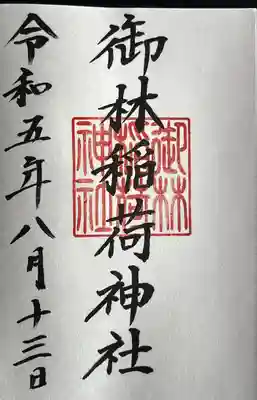 御林稲荷神社
御林稲荷神社
令和五年八月十三日